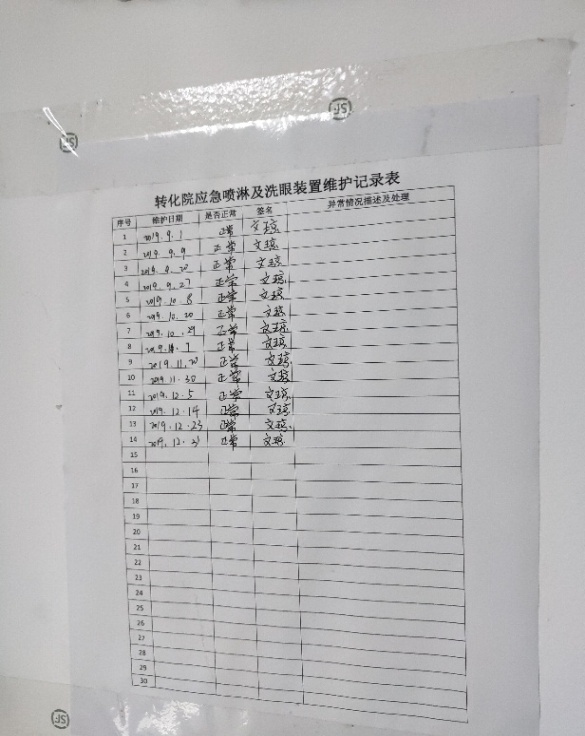 JS
JS
转化院应急喷淋及洗眼装置维护记录表
序号 维护日期 是否正常 签名 异常情况描述及处理
1 2019.9.1 正常 文琼
2 2019.9.9 正常 文琼
3 2019.9.20 正常 文琼
4 2019.9.27 正常 文琼
5 2019.10.8 正常 文琼
6 2019.10.20 正常 文琼
7 2019.10.29 正常 文琼
8 2019.11.7 正常 文琼
9 2019.11.20 正常 文琼
10 2019.11.30 正常 文琼
11 2019.12.5 正常 文琼
12 2019.12.14 正常 文琼
13 2019.12.23 正常 文琼
14 2019.12.31 正常 文琼
15
16
17
18
19
20
21
22
23
24
25
26
27
28
29
30
JS